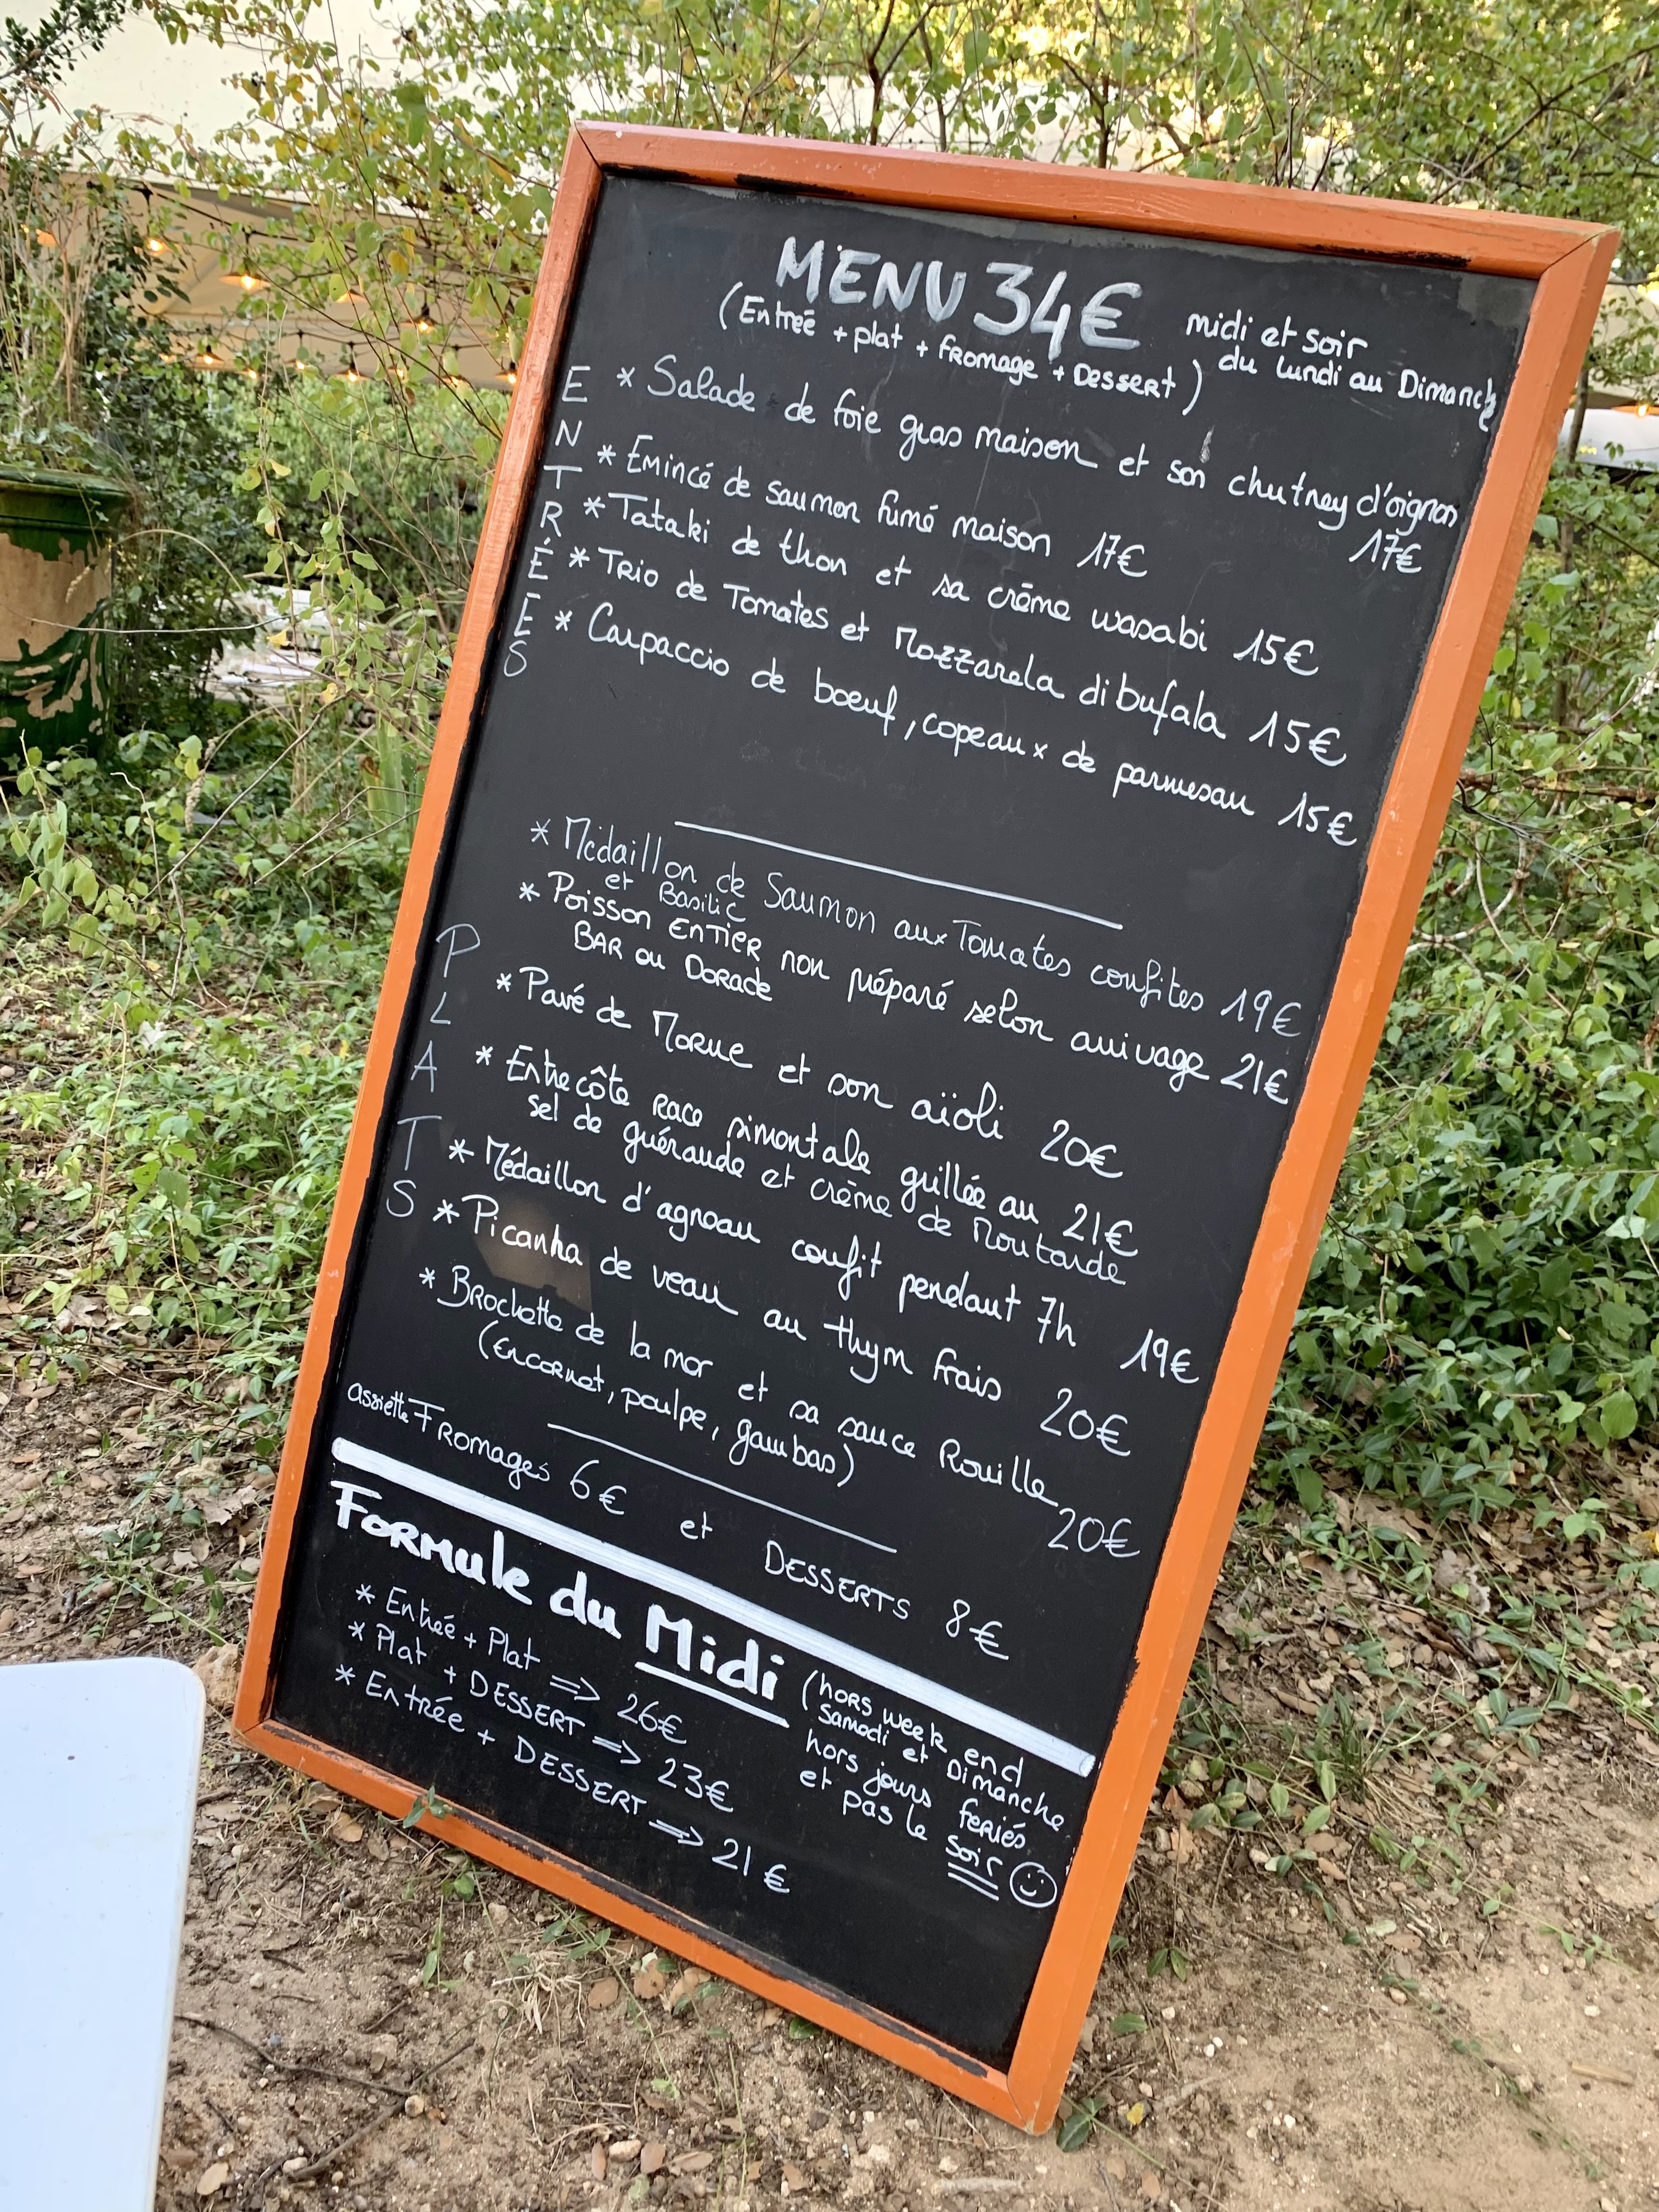 MENU 34€ midi et soir
(Entreé + plat + fromage + Dessert) du lundi au Dimanche
ENTRÉES
* Salade de foie gras maison et son chutney d'oignons
17€
* Emincé de saumon fumé maison 17€
* Tataki de thon et sa crème wasabi 15€
* Trio de Tomates et Mozzarela di bufala 15€
* Carpaccio de boeuf, copeaux de parmesan 15€
PLATS
* Médaillon de Saumon aux Tomates confites 19€
et Basilic
* Poisson ENTiER non préparé selon arrivage 21€
BAR ou DORADE
* Pavé de Morue et son aïoli 20€
* Entrecôte Race simontale grillée au 21€
sel de guérande et crème de Moutarde
* Médaillon d'agneau confit pendant 7h 19€
* Picanha de veau au thym frais 20€
* Brochette de la mer et sa sauce Rouille
(Encornet, poulpe, gambas) 20€
assiette Fromages 6€ et DESSERTS 8€
Formule du Midi (hors week end
Samedi et Dimanche
hors jours feriés
et pas le soir
* Entreé + Plat => 26€
* Plat + DESSERT => 23€
* Entrée + DESSERT => 21€